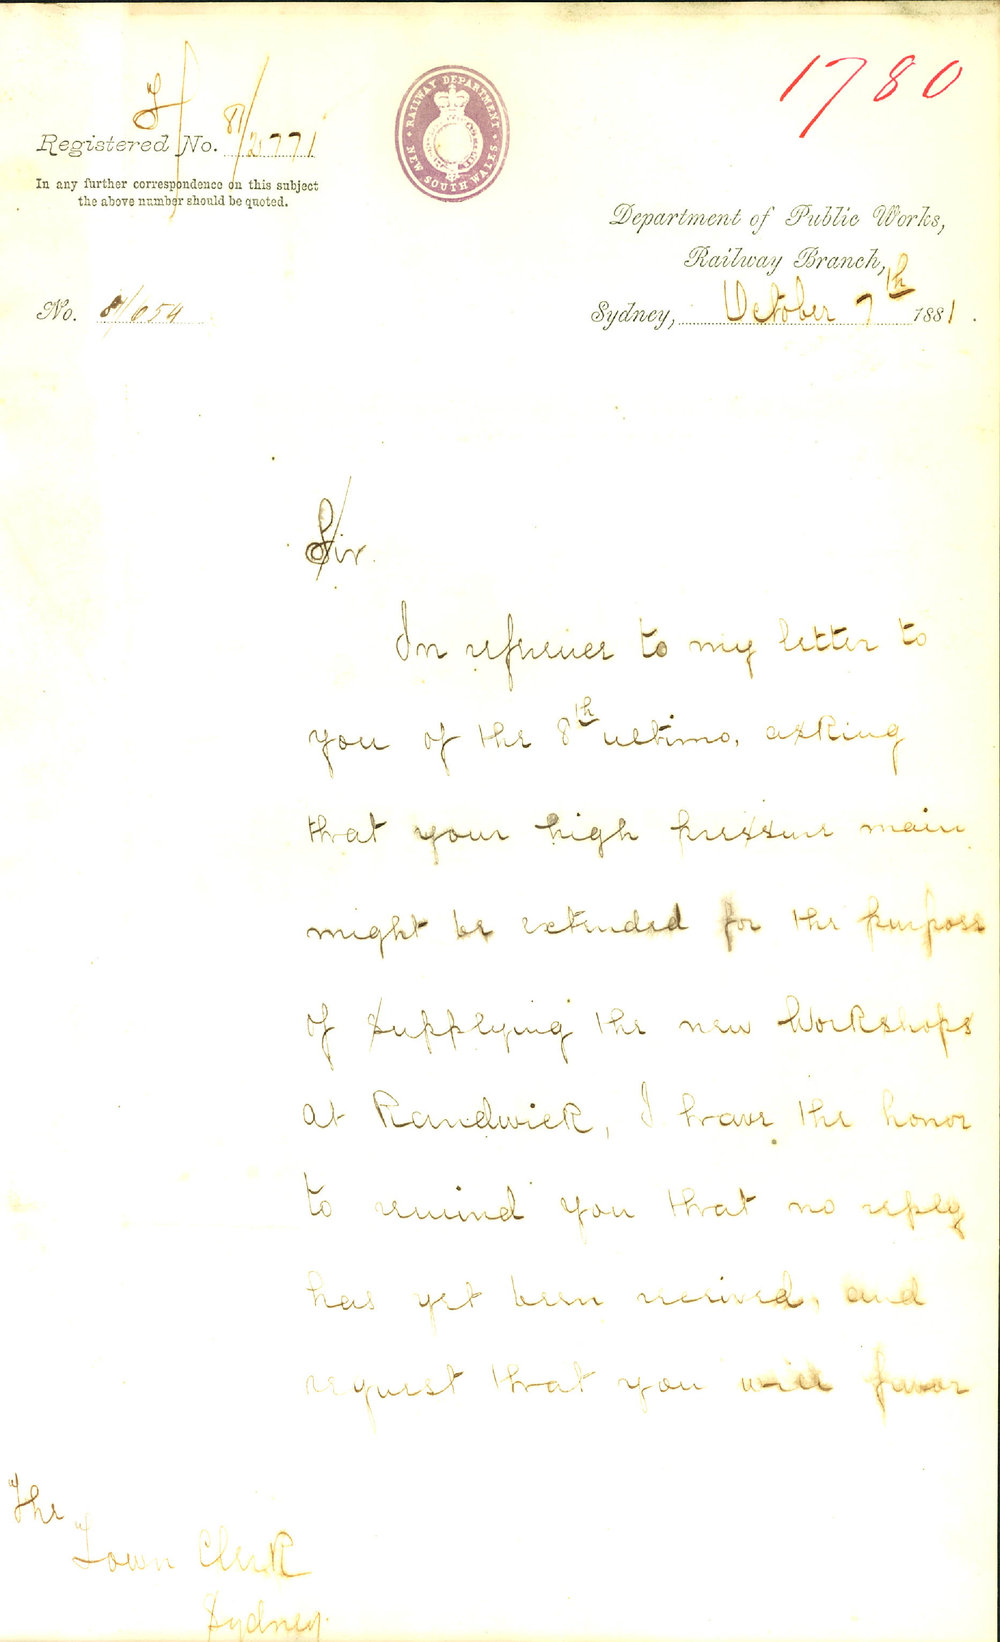 1780
Registered No. 81/2771
In any further correspondence on this subject
the above number should be quoted.
RAILWAY DEPARTMENT
NEW SOUTH WALES
Department of Public Works,
Railway Branch,
No. 81/654
Sydney, October 7th 1881.
Sir.
In reference to my letter to
you of the 8th ultimo, asking
that your high pressure main
might be extended for the purpose
of supplying the new Workshops
at Randwick, I have the honor
to remind you that no reply
has yet been received, and
request that you will favor
The
Town Clerk
Sydney.